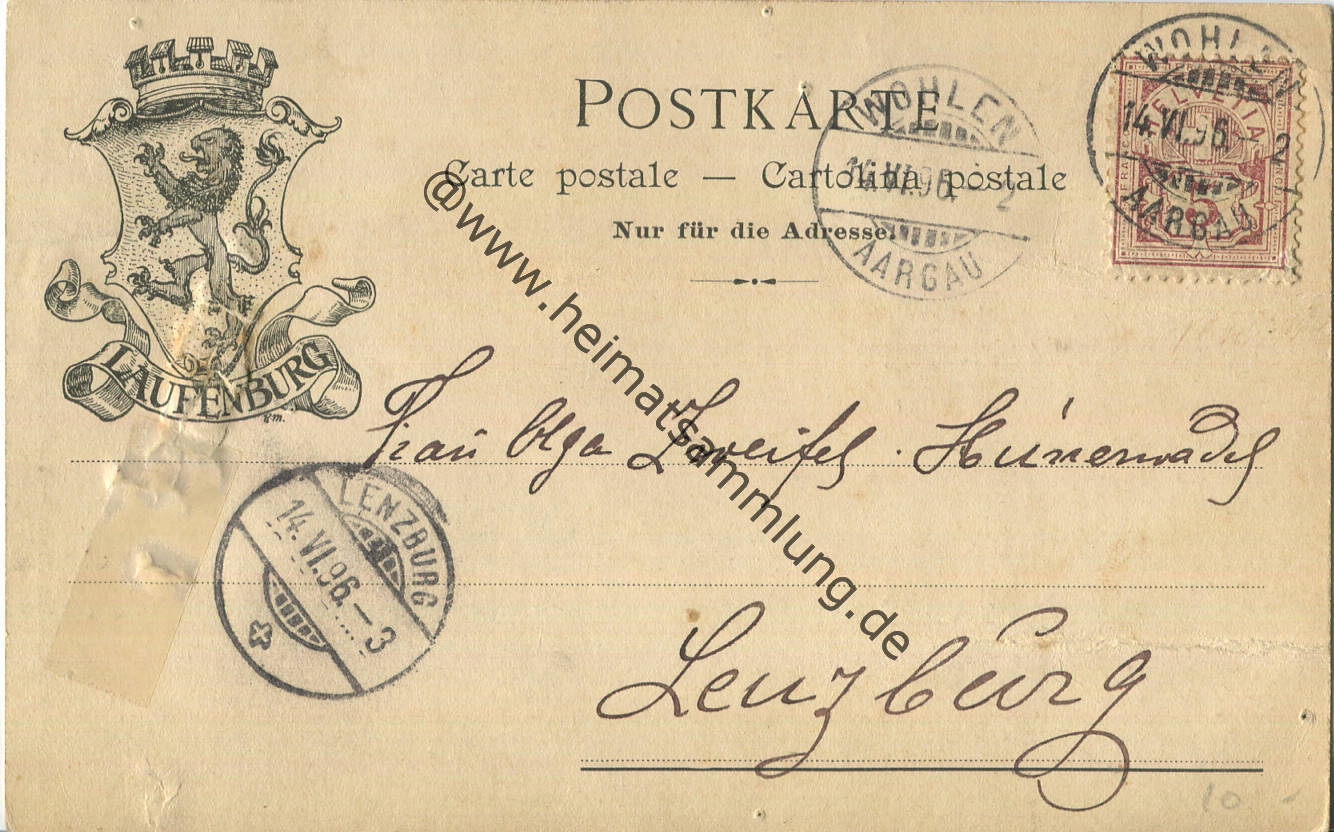 POSTKARTE
Carte postale — Cartolina postale
Nur für die Adresse.
LAUFENBURG
gm.
WOHLEN
14.VI.96.–2
AARGAU
WOHLEN
14.VI.96.–2
AARGAU
HELVETIA
Frau Olga Zweifel . Hünerwadel
LENZBURG
14.VI.96.–3
Lenzburg
10
@www.heimatsammlung.de